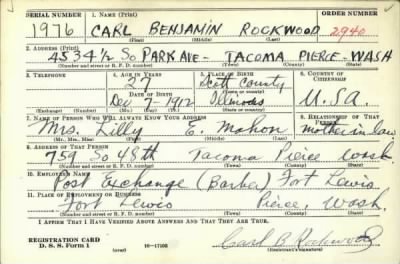 SERIAL NUMBER 1. NAME (Print) ORDER NUMBER
1976 CARL BENJAMIN ROCKWOOD 2940
(First) (Middle) (Last)
2. ADDRESS (Print)
4534½ So PARK AVE - TACOMA PIERCE - WASH
(Number and street or R. F. D. number) (Town) (County) (State)
3. TELEPHONE 4. AGE IN YEARS 5. PLACE OF BIRTH 6. COUNTRY OF CITIZENSHIP
27 Scott County
DATE OF BIRTH (Town or county)
Dec 7 - 1912 Illinois U.S.A.
(Exchange) (Number) (Mo.) (Day) (Yr.) (State or country)
7. NAME OF PERSON WHO WILL ALWAYS KNOW YOUR ADDRESS 8. RELATIONSHIP OF THAT PERSON
Mrs. Lilly E. Mahon mother in law
(Mr., Mrs., Miss) (First) (Middle) (Last)
9. ADDRESS OF THAT PERSON
759 So 48th Tacoma Pierce Wash
(Number and street or R. F. D. number) (Town) (County) (State)
10. EMPLOYER'S NAME
Post Exchange (Barber) Fort Lewis
11. PLACE OF EMPLOYMENT OR BUSINESS
Fort Lewis Pierce, Wash.
(Number and street or R. F. D. number) (Town) (County) (State)
I AFFIRM THAT I HAVE VERIFIED ABOVE ANSWERS AND THAT THEY ARE TRUE.
REGISTRATION CARD
D. S. S. Form 1 16-17105 Carl B Rockwood
(Registrant's signature)